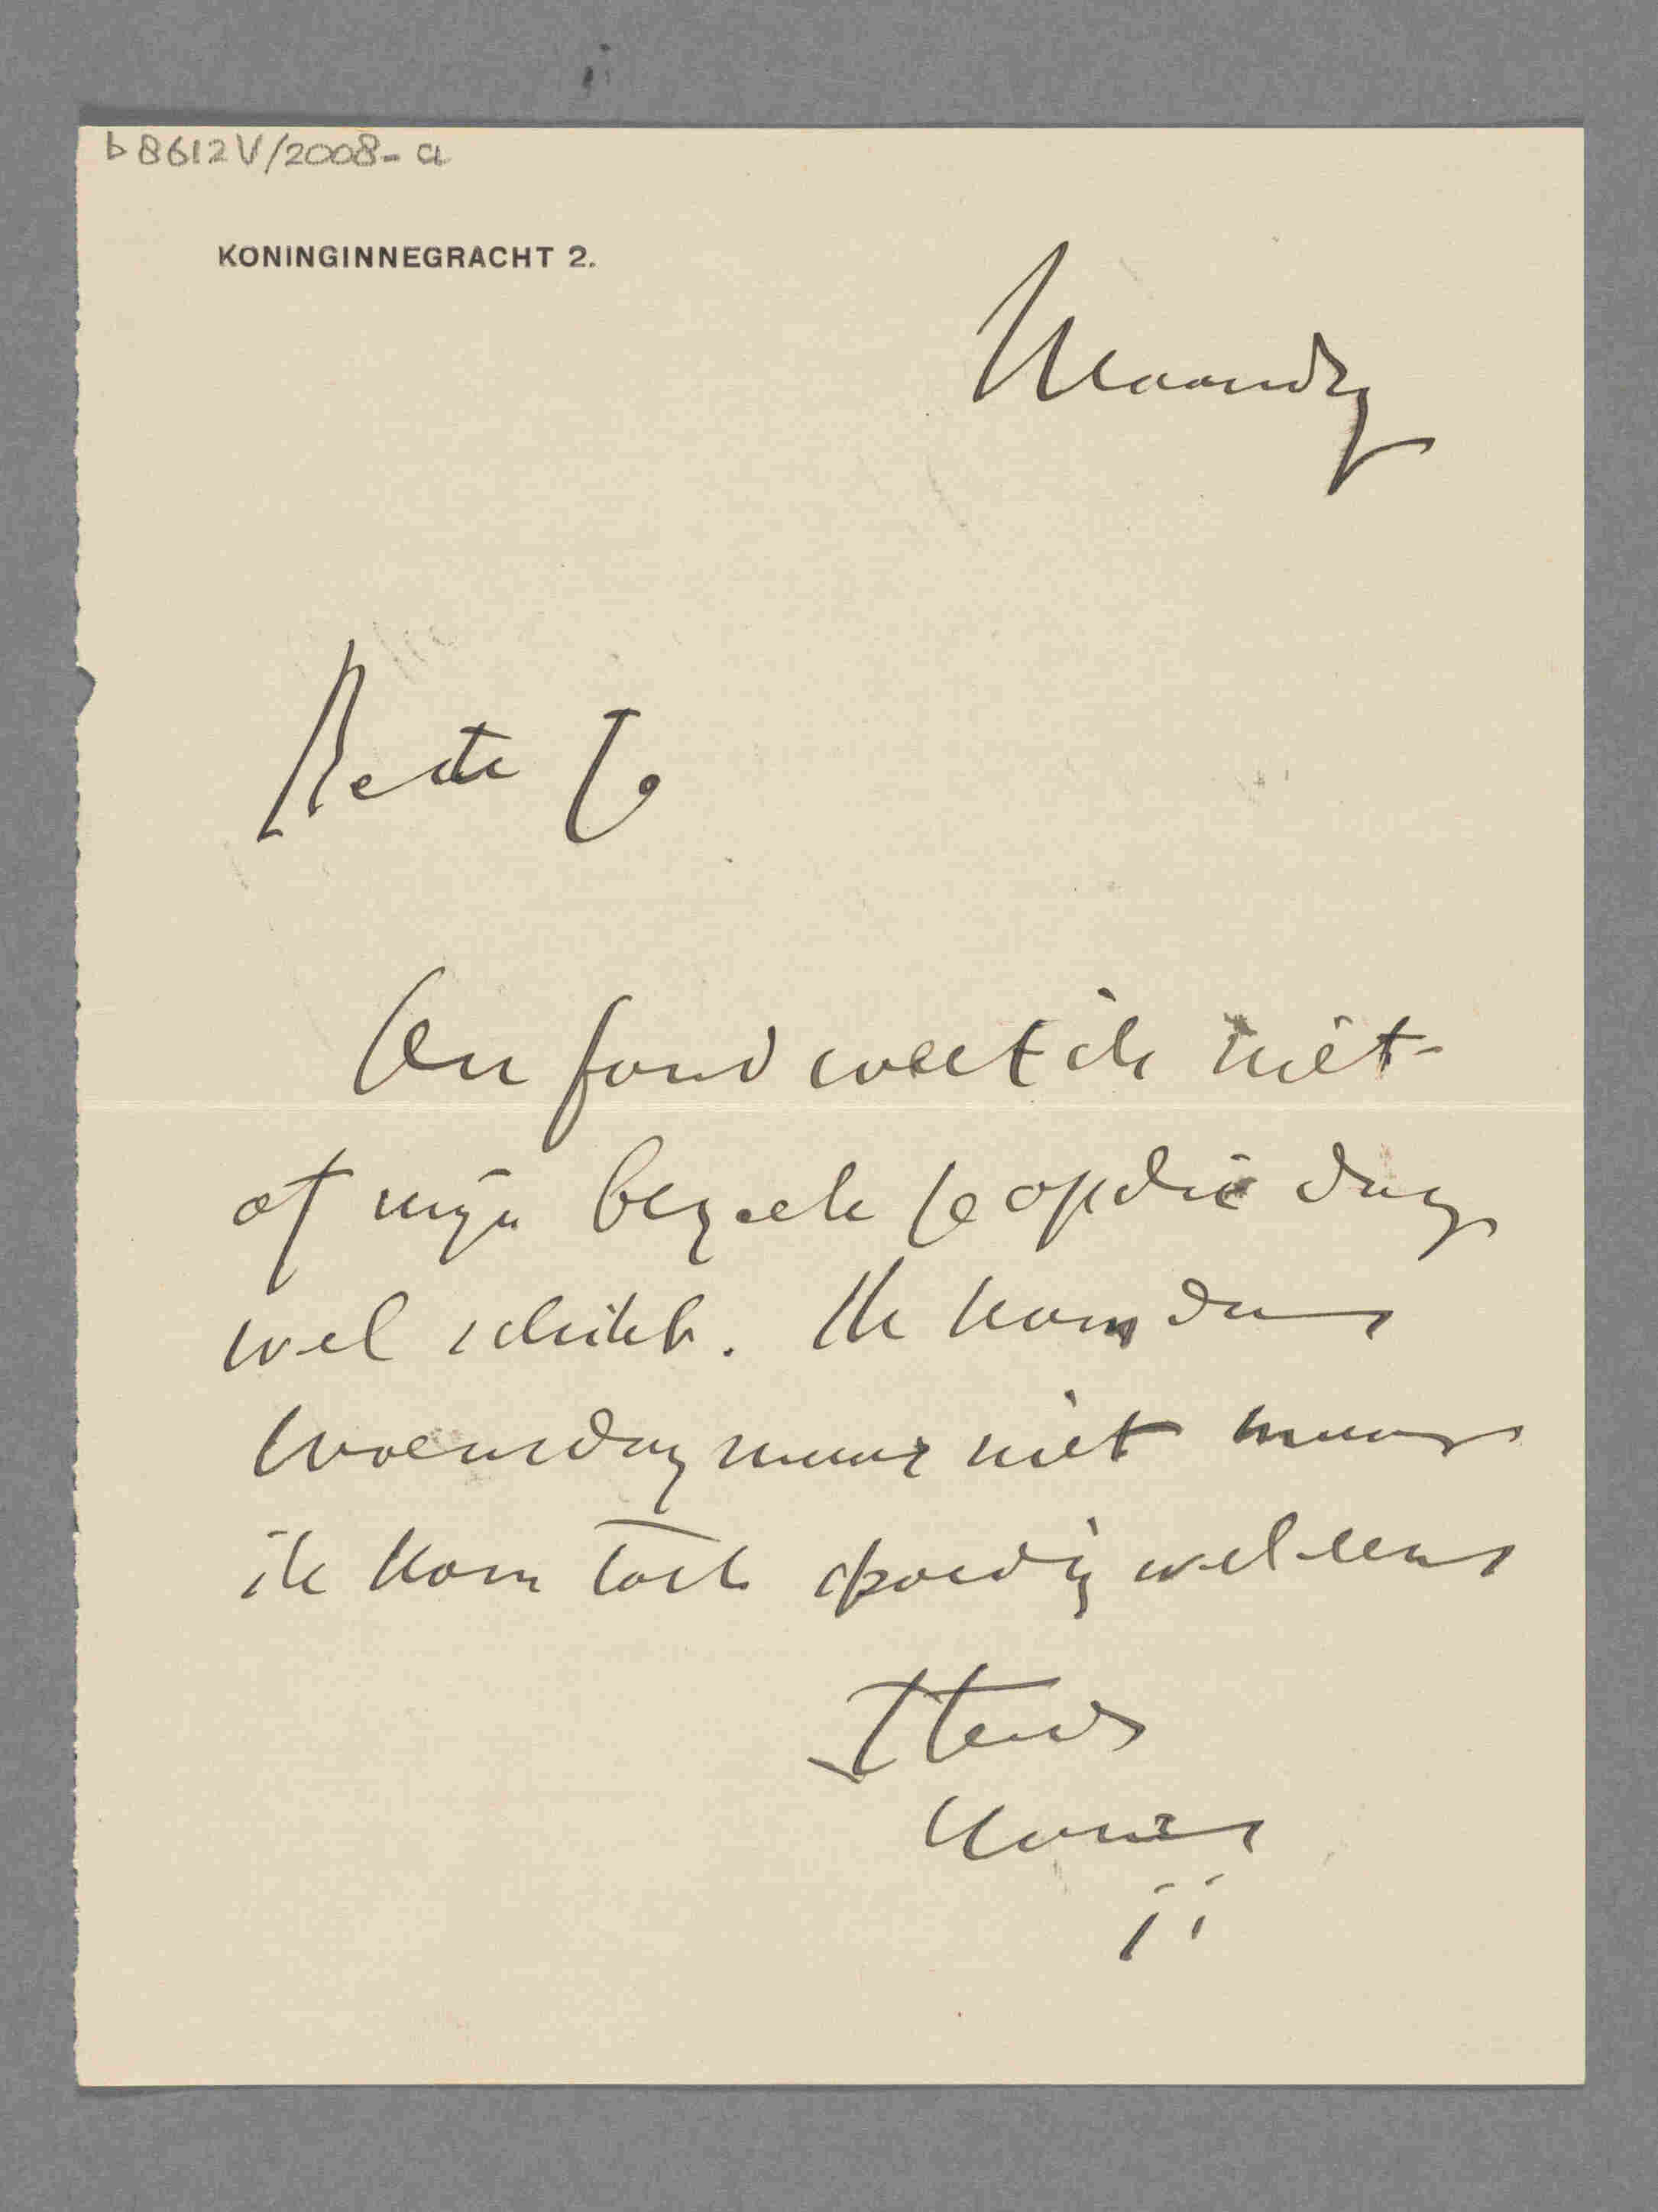 b8612V/2008-a
KONINGINNEGRACHT 2.
Maandag
Beste Jo
Au fond weet ik niet
of mijn bezoek je op die dag
wel schikt. Ik kom dus
Woensdag maar niet maar
ik kom toch spoedig wel eens